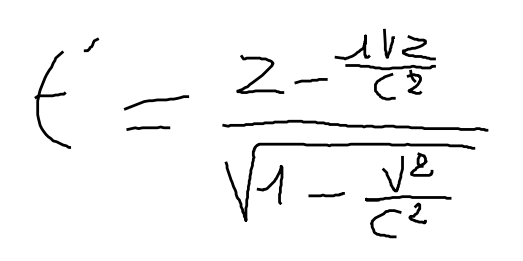 t' = \frac{2 - \frac{1V2}{c^2}}{\sqrt{1 - \frac{V^2}{c^2}}}